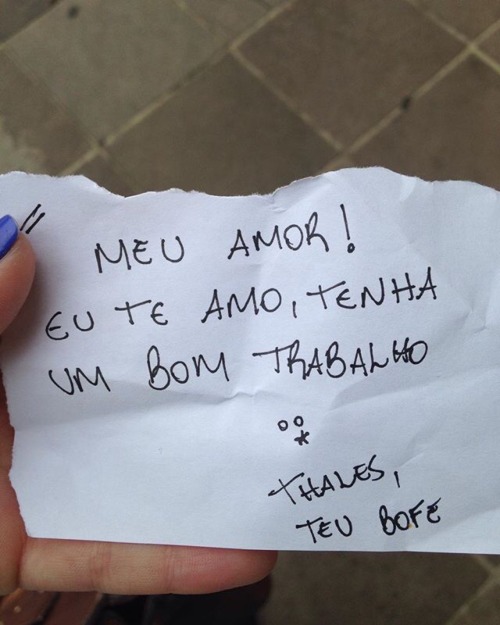 "
MEU AMOR!
EU TE AMO, TENHA
UM BOM TRABALHO
°°
*
THALES,
TEU BOFE